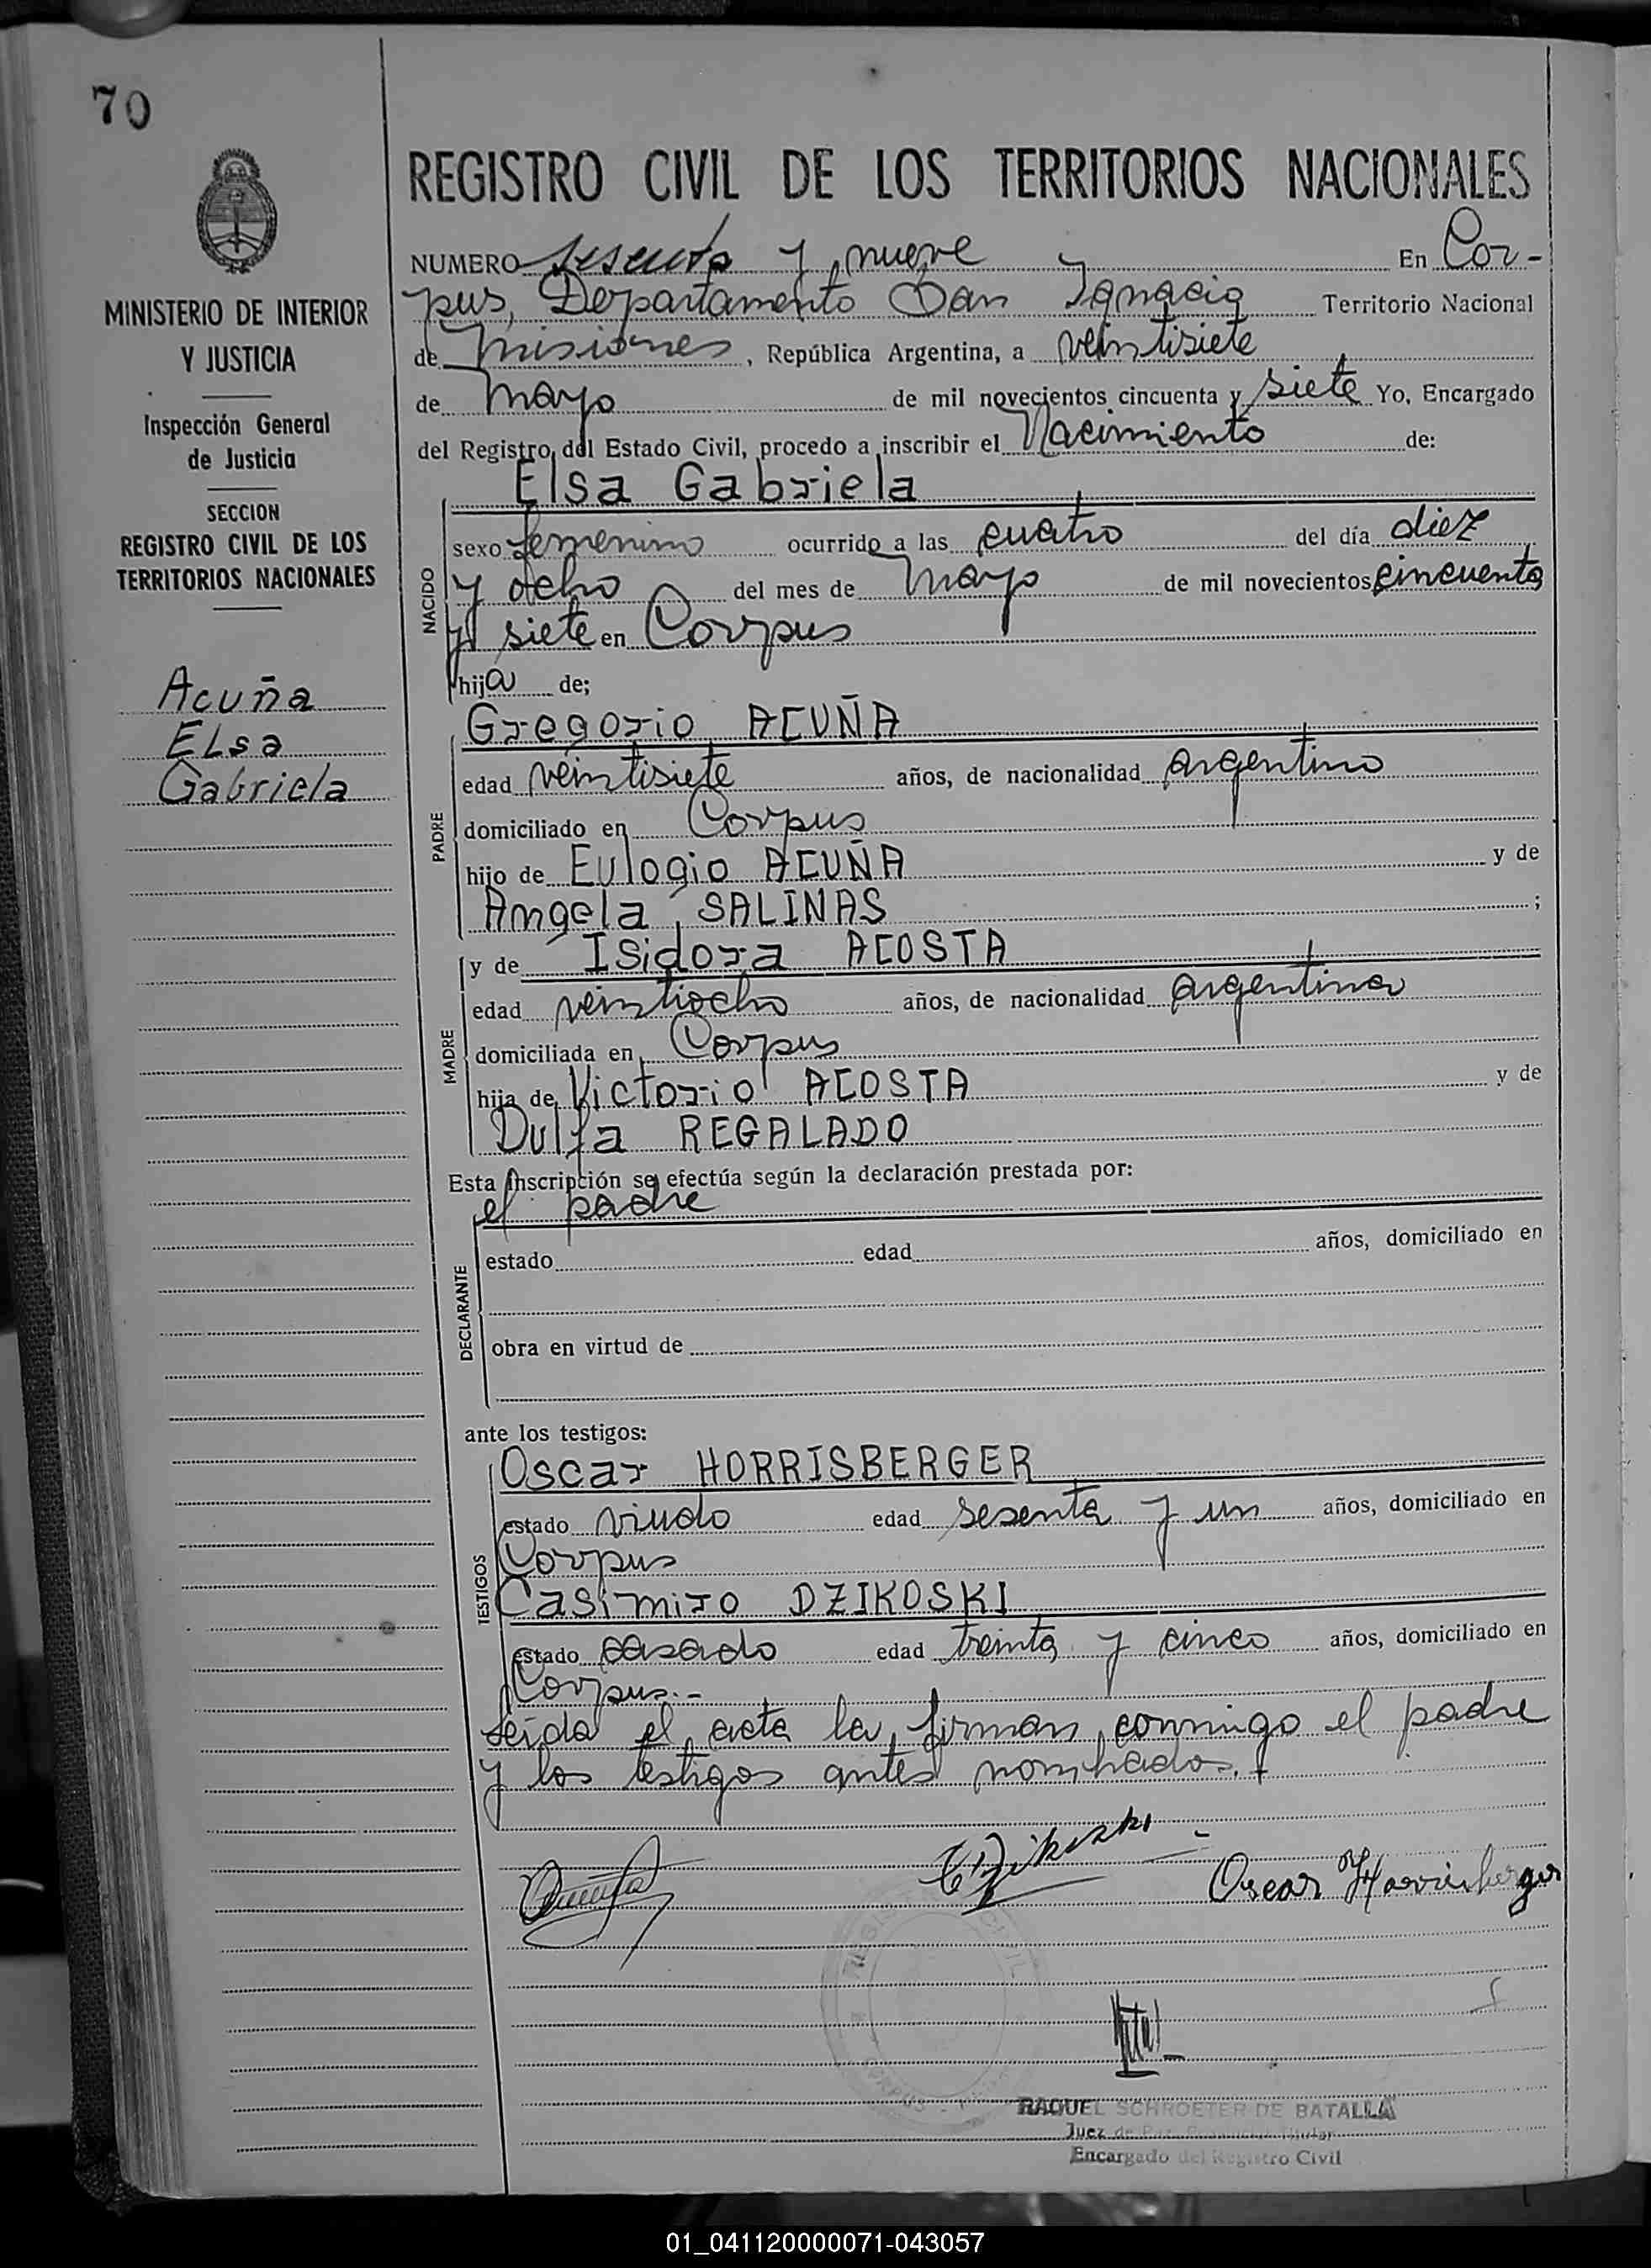 70
REGISTRO CIVIL DE LOS TERRITORIOS NACIONALES
NUMERO sesenta y nueve En Cor-
pus, Departamento San Ignacio Territorio Nacional
de misiones, República Argentina, a veintisiete
de mayo de mil novecientos cincuenta y siete Yo, Encargado
del Registro del Estado Civil, procedo a inscribir el Nacimiento de:
Elsa Gabriela
sexo femenino ocurrido a las cuatro del día diez
y ocho del mes de mayo de mil novecientos cincuenta
y siete en Corpus
hija de;
Gregorio ACUÑA
edad veintisiete años, de nacionalidad argentino
domiciliado en Corpus
hijo de Eulogio ACUÑA y de
Angela SALINAS ;
y de Isidora ACOSTA
edad veintiocho años, de nacionalidad argentina
domiciliada en Corpus
hija de Victorio ACOSTA y de
Dulfa REGALADO
Esta inscripción se efectúa según la declaración prestada por:
el padre
estado edad años, domiciliado en
obra en virtud de
ante los testigos:
Oscar HORRISBERGER
estado viudo edad sesenta y un años, domiciliado en
Corpus
Casimiro DZIKOSKI
estado casado edad treinta y cinco años, domiciliado en
Corpus.-
Leida el acta la firman conmigo el padre
y los testigos antes nombrados.
Oscar Horrisberger
RAQUEL SCHROETER DE BATALLA
Juez de Paz
Encargado del Registro Civil
MINISTERIO DE INTERIOR
Y JUSTICIA
Inspección General
de Justicia
SECCION
REGISTRO CIVIL DE LOS
TERRITORIOS NACIONALES
Acuña
ELsa
Gabriela
NACIDO
PADRE
MADRE
DECLARANTE
TESTIGOS
01_041120000071-043057